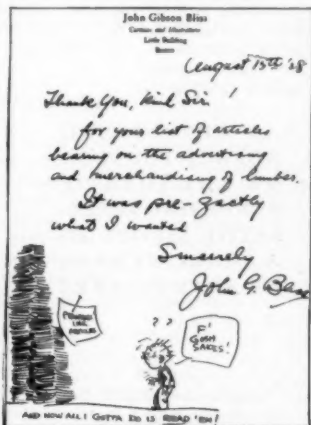 John Gibson Bliss
Cartoons and Illustrations
Little Building
Boston
August 15th '28
Thank you, kind Sir!
for your list of articles
bearing on the advertising
and merchandising of lumber.
It was pre-zactly
what I wanted
Sincerely
John G. Bliss
? ?
F'
GOSH
SAKES!
AND NOW ALL I GOTTA DO IS READ 'EM!